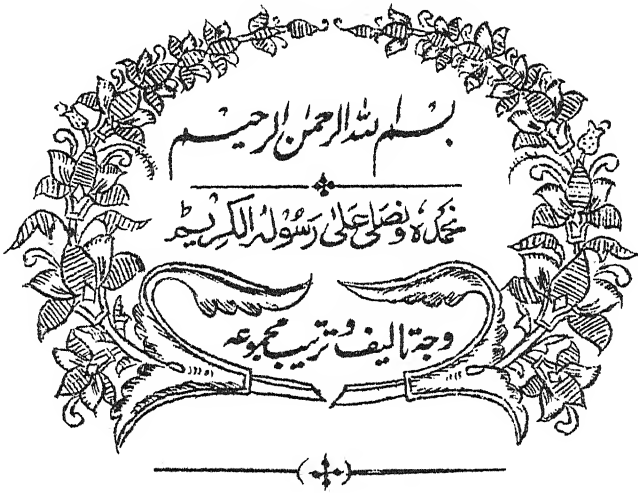 بسم الله الرحمٰن الرحیم
نحمدہ ونصلی علیٰ رسولہ الکریم
وجہ تالیف و ترتیب مجموعہ